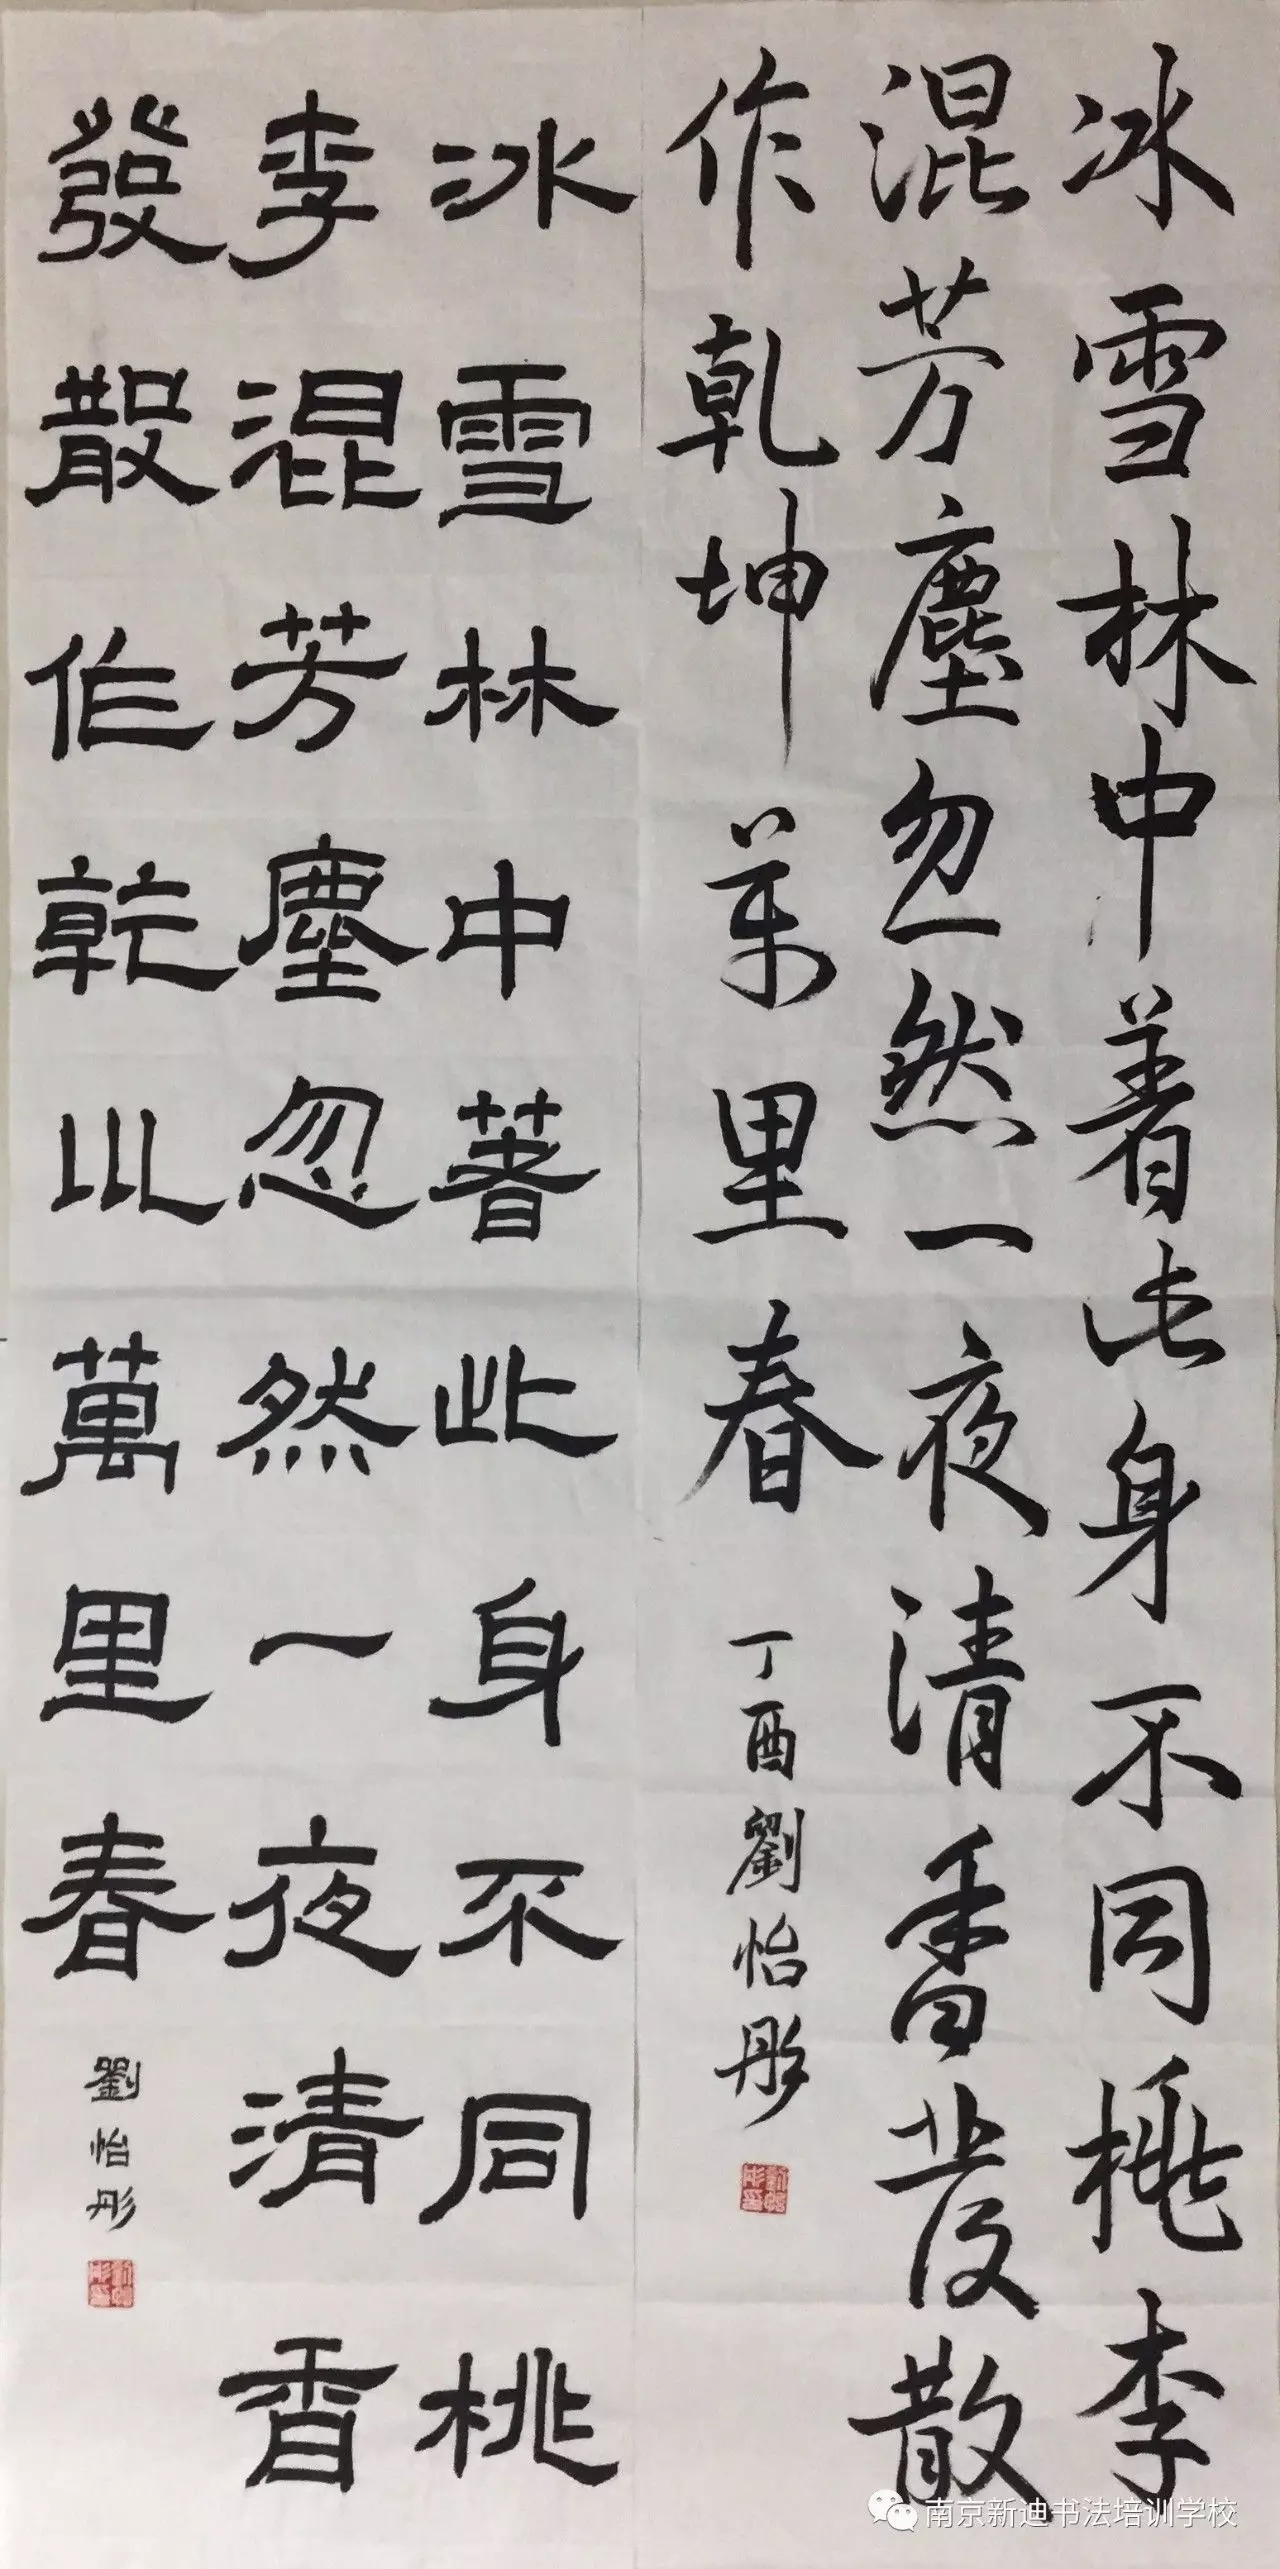 冰雪林中着此身不同桃李
混芳塵忽然一夜清香发散
作乾坤萬里春
丁酉劉怡彤
冰雪林中著此身不同桃
李混芳塵忽然一夜清香
發散作乾巛萬里春
劉怡彤
南京新迪书法培训学校